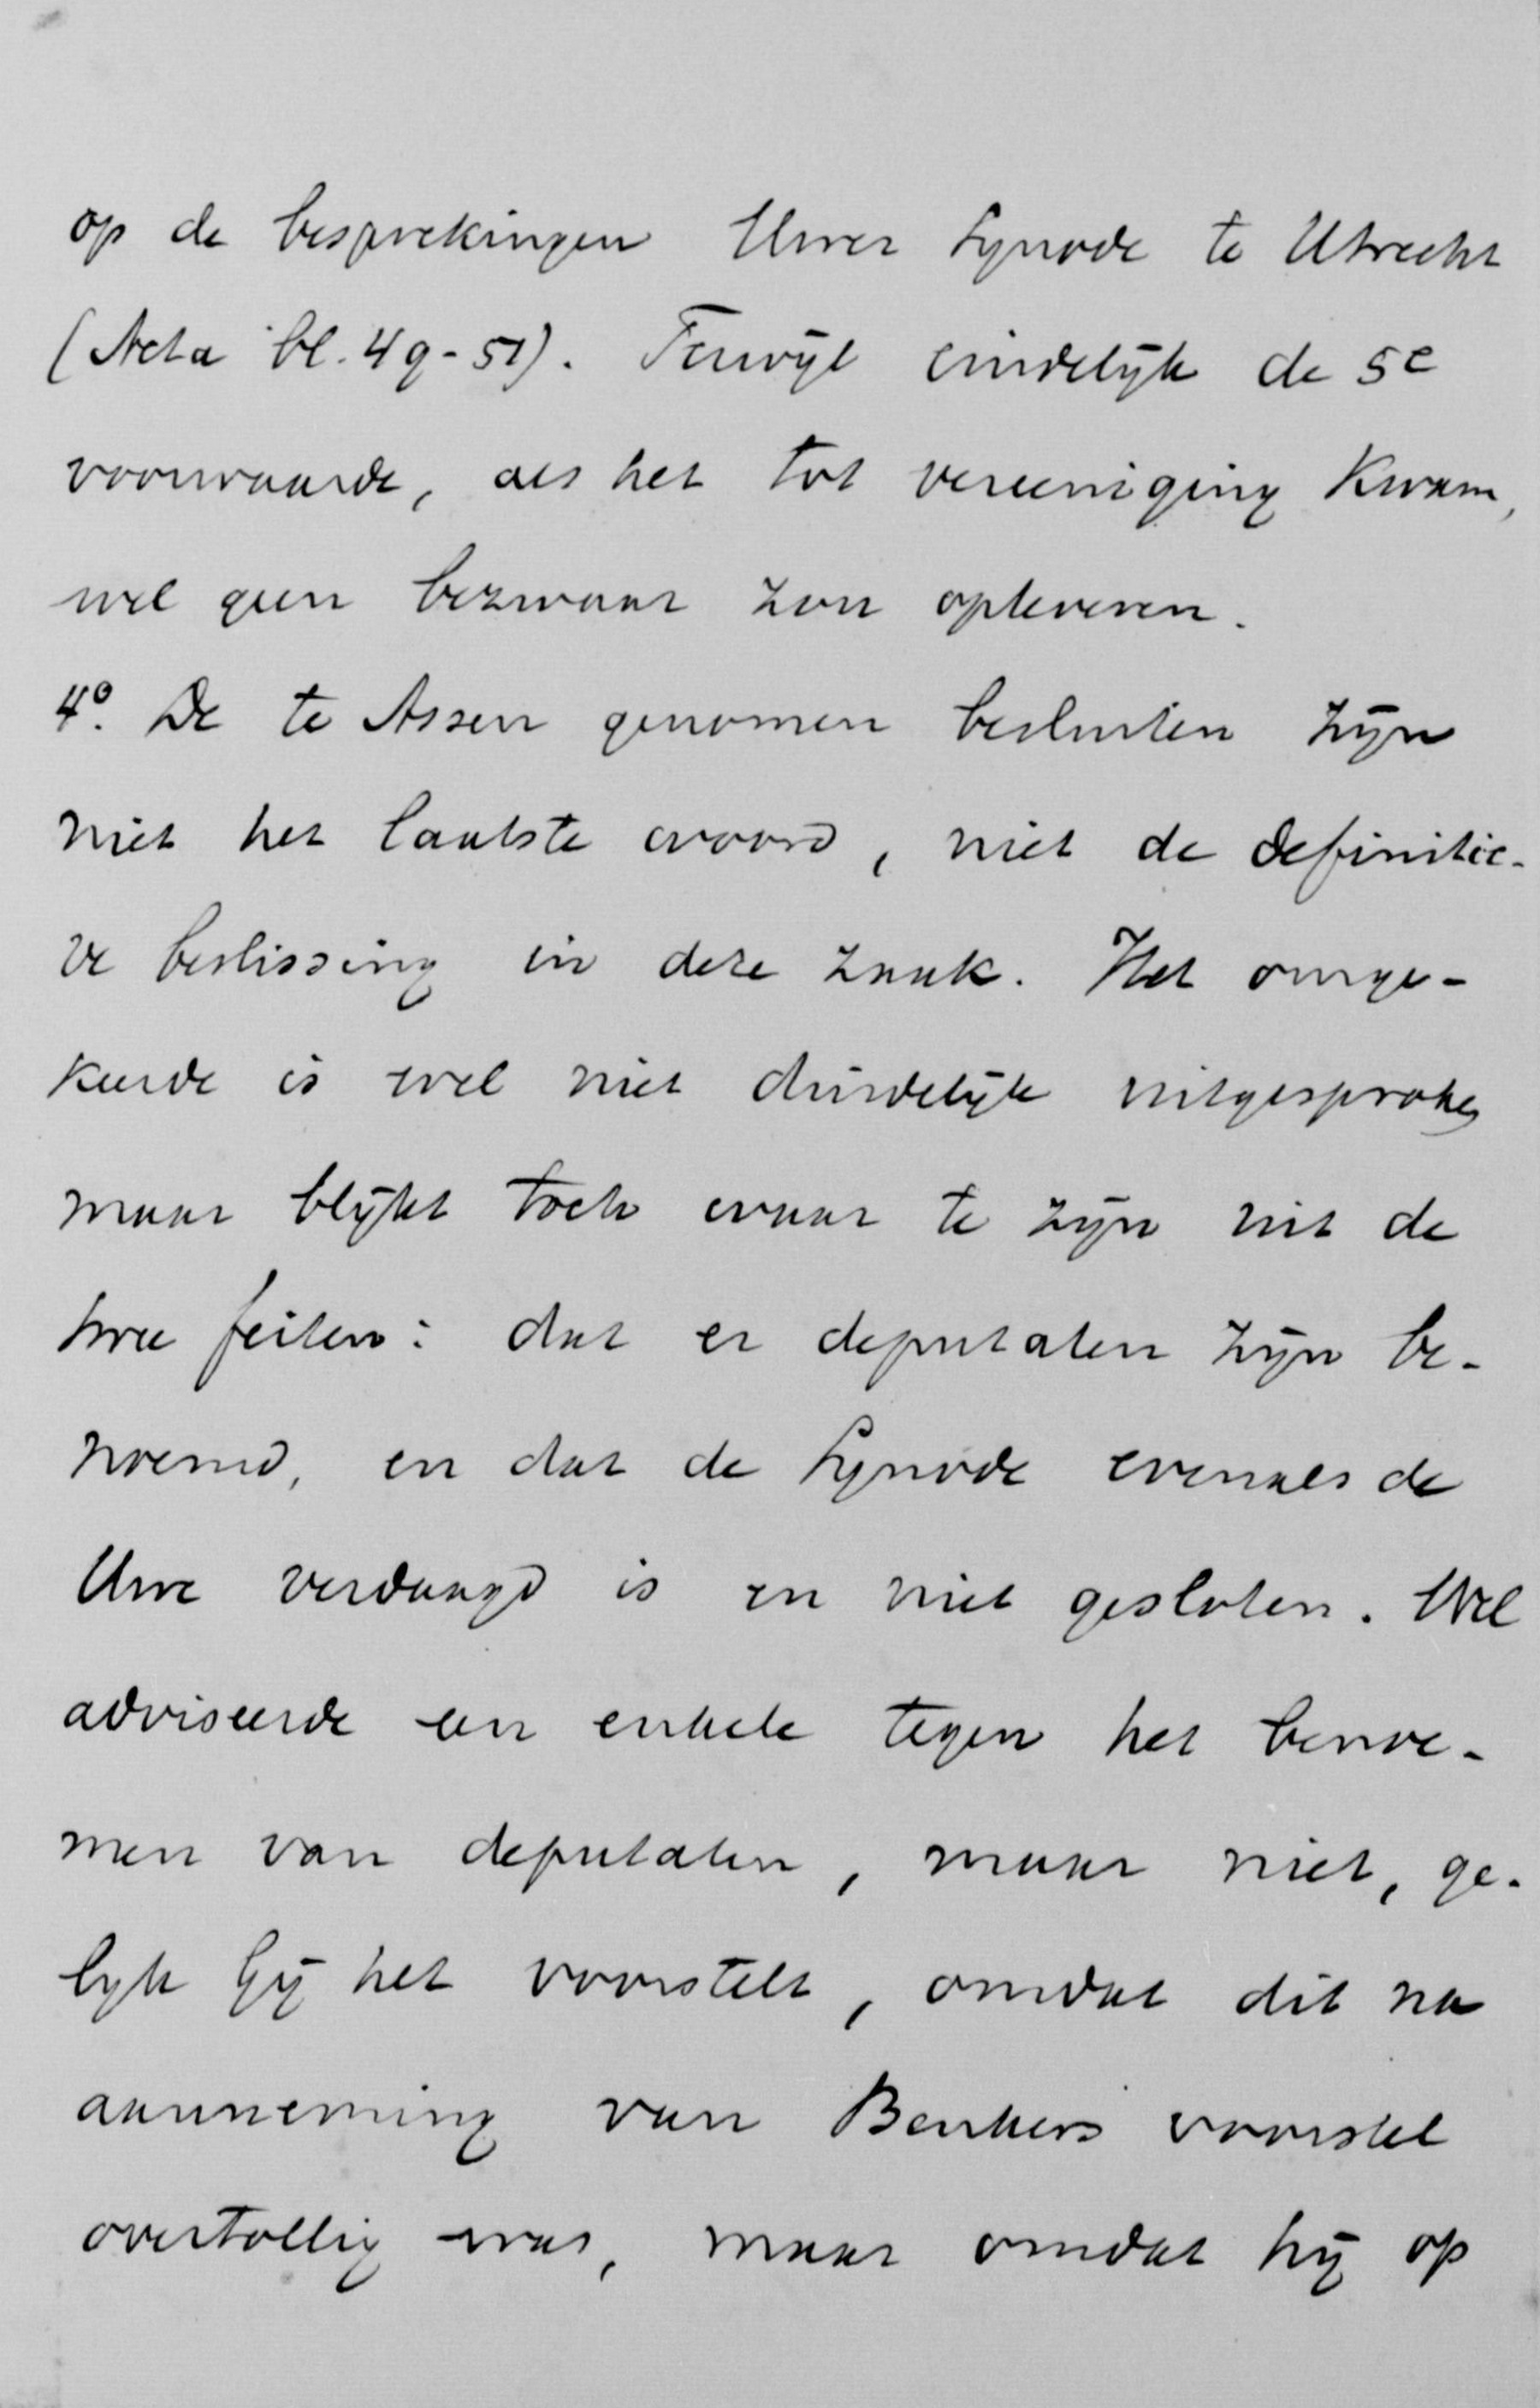 op de besprekingen Uwer Synode te Utrecht
(Acta bl. 49-51). Terwijl eindelijk de 5e
voorwaarde, als het tot vereeniging kwam,
wel geen bezwaar zou opleveren.
4o. De te Assen genomen besluiten zijn
niet het laatste woord, niet de definitie-
ve beslissing in deze zaak. Het omge-
keerde is wel niet duidelijk uitgesproken
maar blijkt toch waar te zijn uit de
twee feiten: dat er deputaten zijn be-
noemd, en dat de Synode evenals de
Uwe verdaagd is en niet gesloten. Wel
adviseerde een enkele tegen het benoe-
men van deputaten, maar niet, ge-
lijk Gij het voorstelt, omdat dit na
aanneming van Beukers voorstel
overtollig was, maar omdat hij op